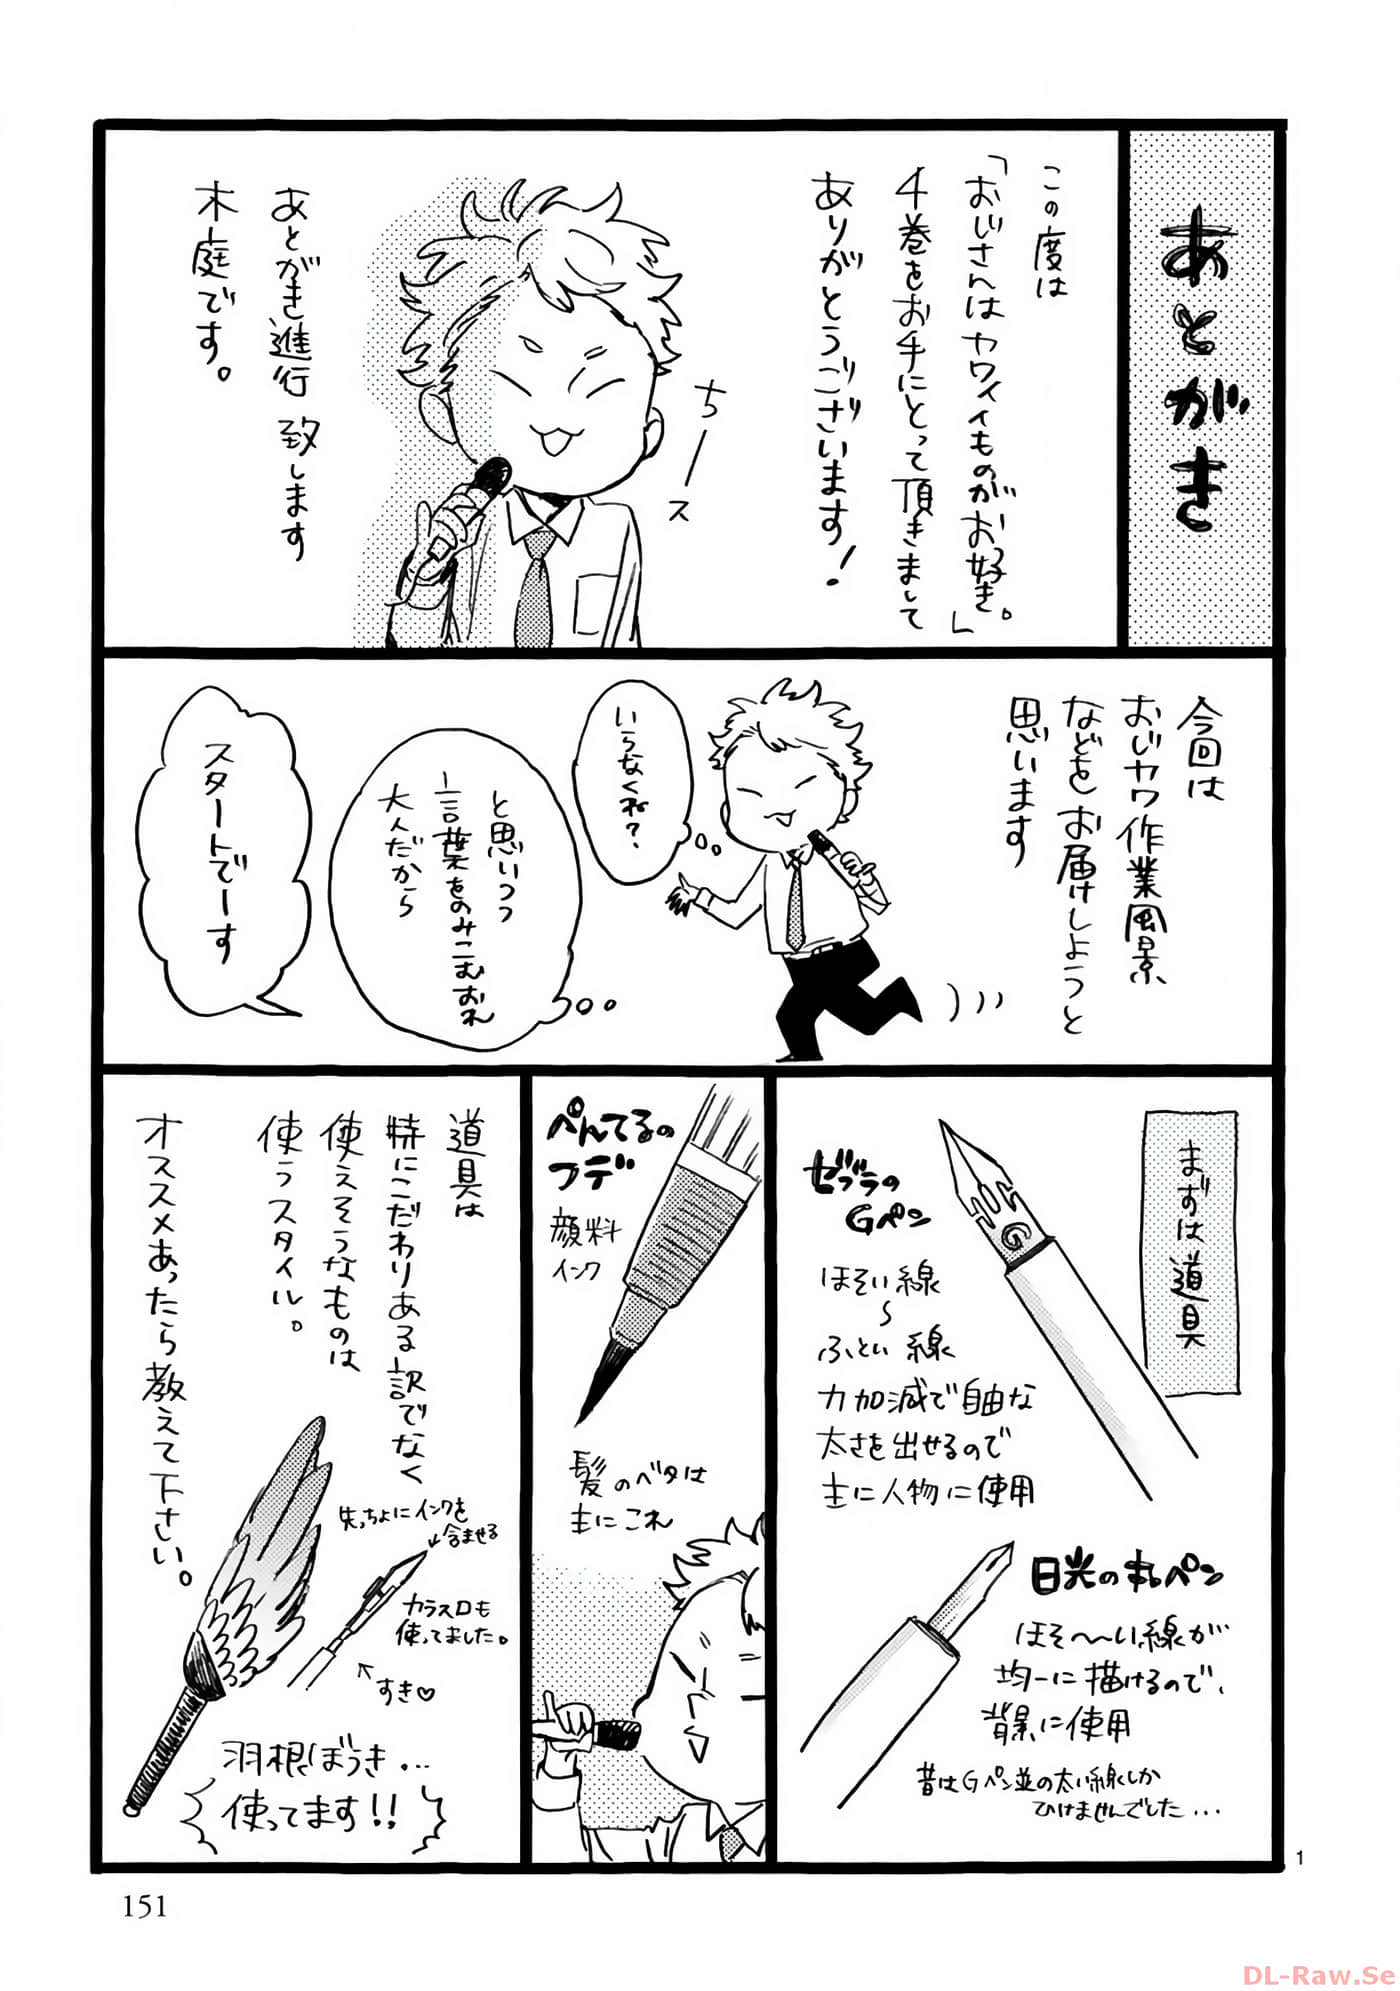 あとがき
この度は
「おじさんはカワイイものがお好き。」
4巻をお手にとって頂きまして
ありがとうございます！
ちーース
あとがき進行 致します
木庭です。
今回は
おじカワ作業風景
などをお届けしようと
思います
いらなくね？
と思いつつ
言葉をのみこむおれ
大人だから
スタートでーす
まずは道具
ゼブラの
Gペン
G
ほそい線
〜
ふとい線
力加減で自由な
太さを出せるので
主に人物に使用
日光の丸ペン
ほそ〜〜い線が
均一に描けるので、
背景に使用
昔はGペン並の太い線しか
ひけませんでした...
ぺんてるの
フデ
顔料
インク
髪のベタは
主にこれ
道具は
特にこだわりある訳でなく
使えそうなものは
使うスタイル。
オススメあったら教えて下さい。
先っちょにインクを
含ませる
カラス口も
使ってました。
すき♡
羽根ぼうき...
使ってます!!
1
151
DL-Raw.Se